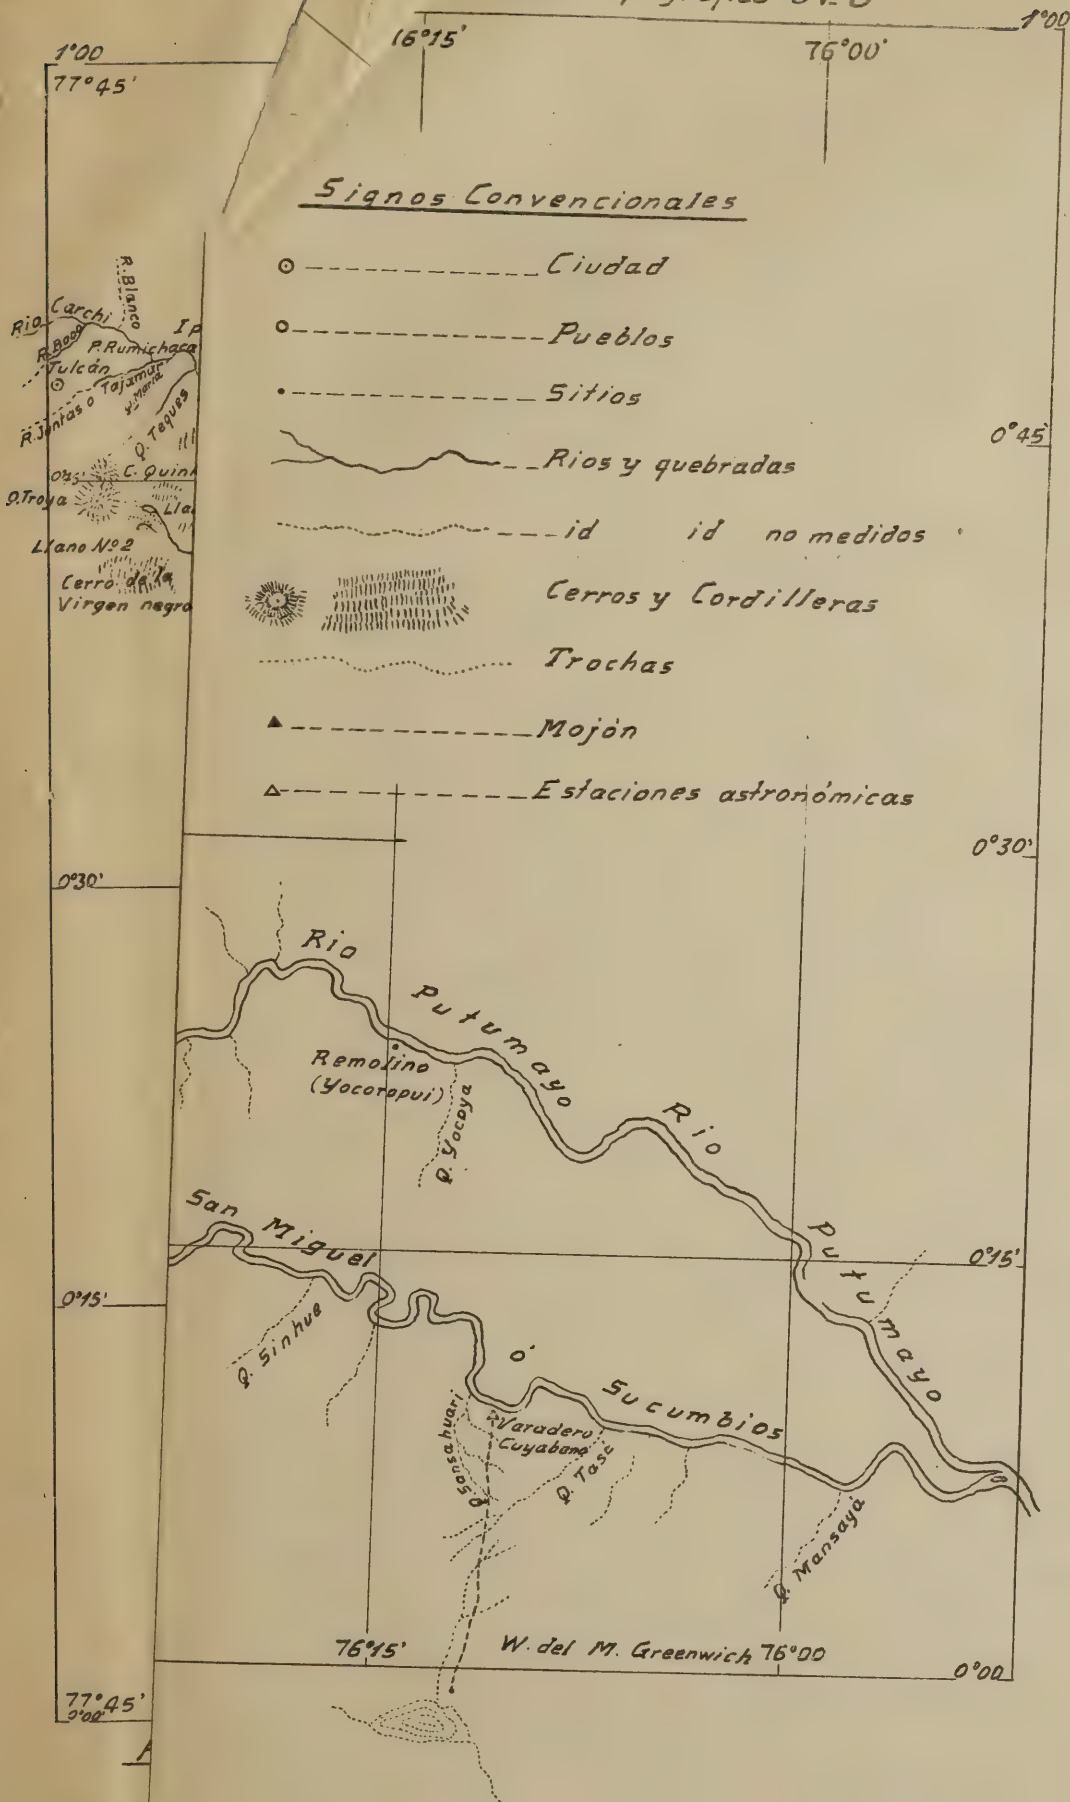 1°00
16°15'
76°00'
1°00
77°45'
Signos Convencionales
Ciudad
Pueblos
Sitios
Rios y quebradas
id id no medidos
Cerros y Cordilleras
Trochas
Mojón
Estaciones astronómicas
R. Blanco
Rio Carchi
R. Bobo
Ip
P. Rumichaca
Tulcán
Tajamar
R. Juntas o
Q. Teques
C. Quink
Q. Troya
Lla
Llano Nº 2
Cerro de la
Virgen negra
0°45'
0°30'
0°30'
Rio Putumayo
Remolino
(Yocoropui)
Q. Yocoya
Rio Putumayo
San Miguel ó Sucumbios
0°15'
0°15'
Q. Sinhue
Q. Sansahuari
Varadero
Cuyabeno
Q. Tase
Q. Mansayá
76°15'
W. del M. Greenwich
76°00
0°00'
77°45'
0°00'
A